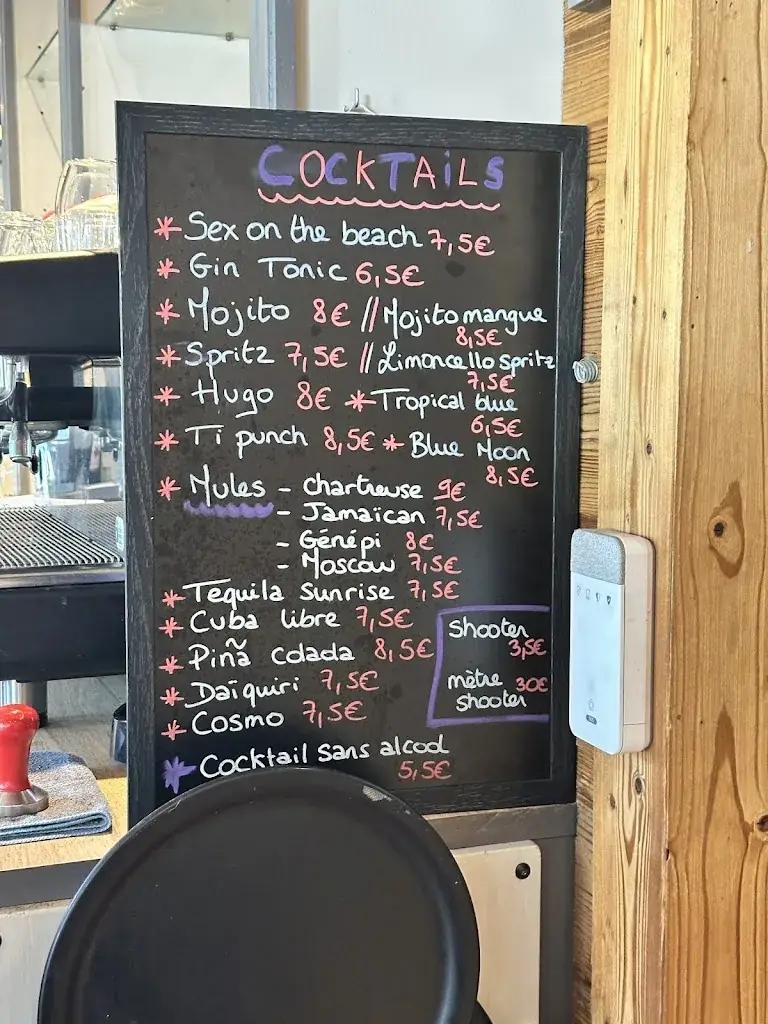 COCKTAiLS
* Sex on the beach 7,5€
* Gin Tonic 6,5€
* Mojito 8€ // Mojito mangue
8,5€
* Spritz 7,5€ // Limoncello spritz
7,5€
* Hugo 8€ * Tropical blue
6,5€
* Ti punch 8,5€ * Blue Moon
8,5€
* Mules - chartreuse 9€
- Jamaïcan 7,5€
- Génépi 8€
- Moscow 7,5€
* Tequila Sunrise 7,5€
* Cuba libre 7,5€
* Pinã Colada 8,5€
* Daïquiri 7,5€
* Cosmo 7,5€
Shooter
3,5€
mètre 30€
shooter
* Cocktail sans alcool
5,5€